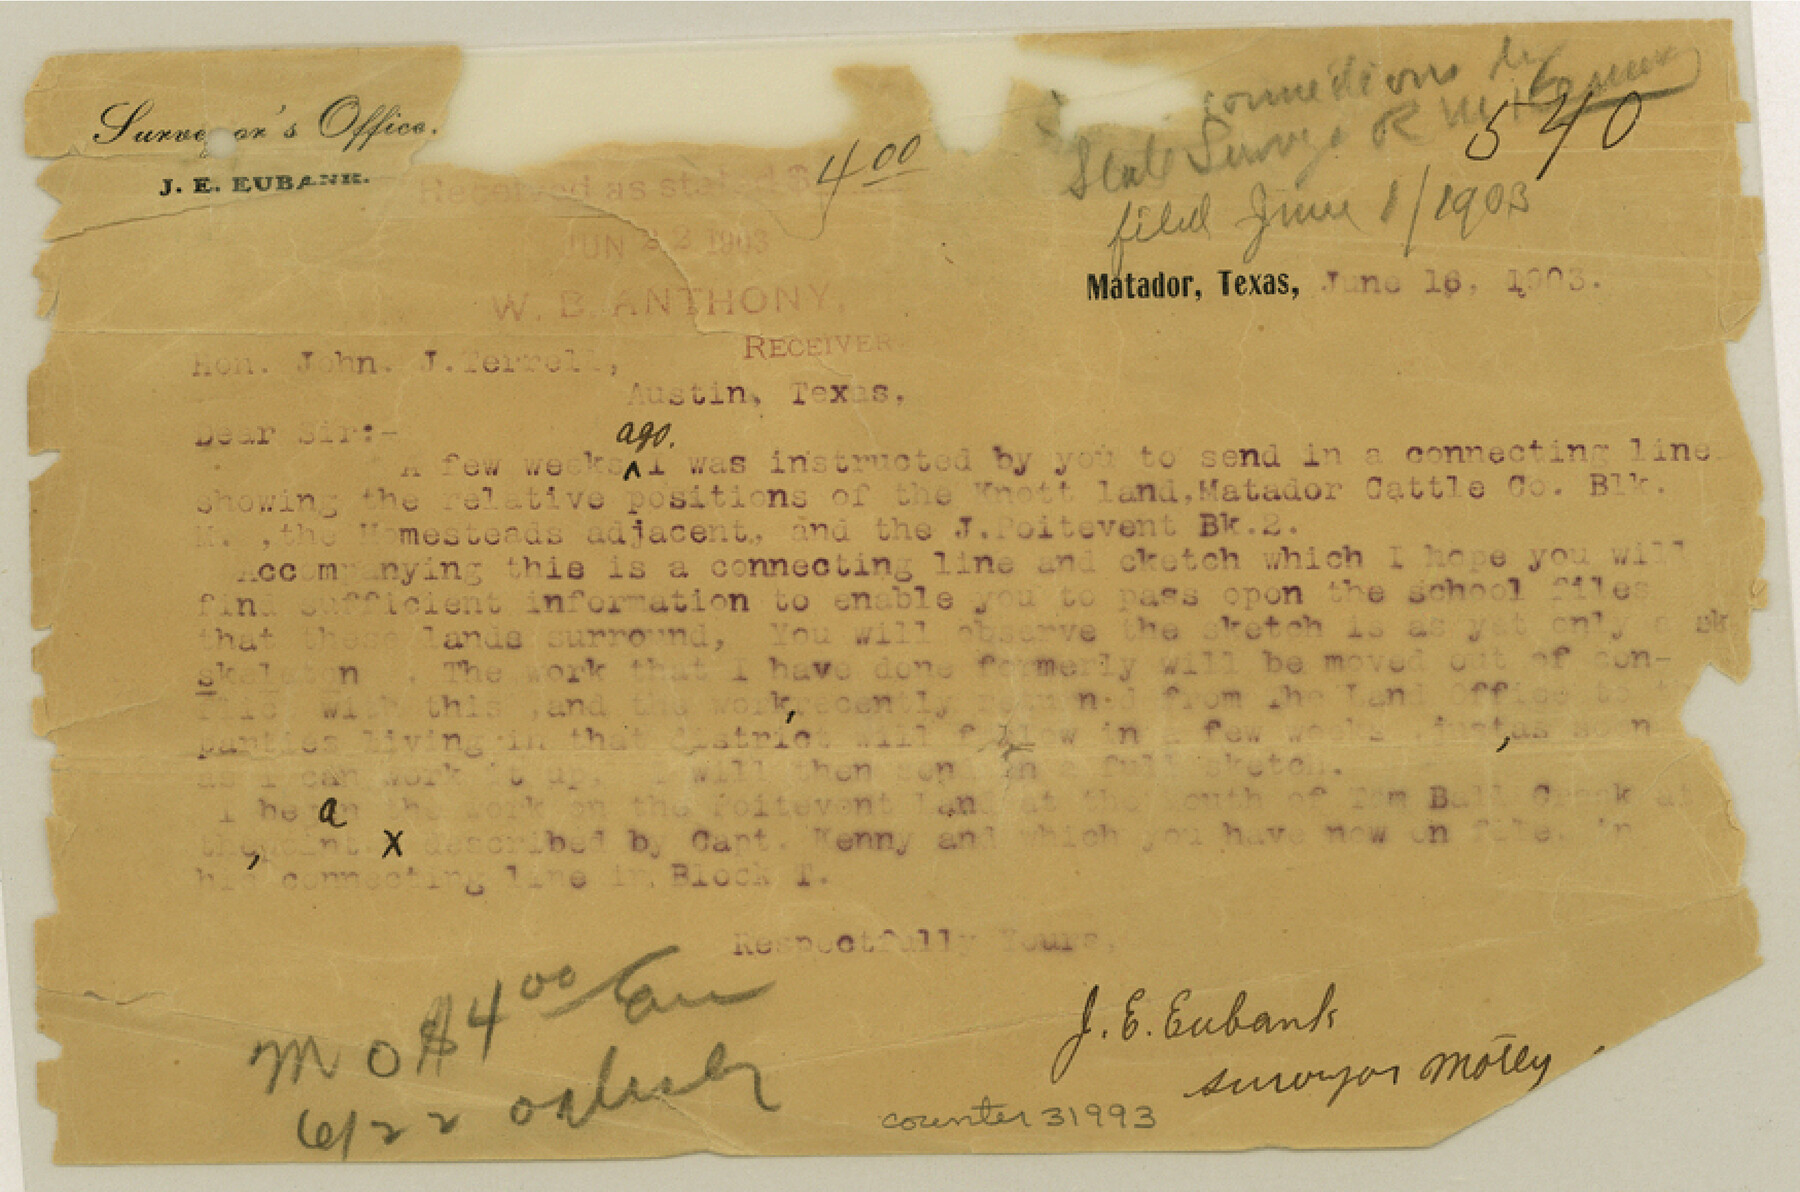 Surveyor's Office.
J. E. EUBANK.
connections
State Surveys R M
540
filed June 1/1903
Received as stated $ 4 00
JUN 22 1903
W. B. ANTHONY,
RECEIVER
Matador, Texas, June 16, 1903.
Hon. John. J.Terrell,
Austin, Texas,
Dear Sir:-
ago.
A few weeks ^ I was instructed by you to send in a connecting line
showing the relative positions of the Knott land,Matador Cattle Co. Blk.
M. ,the Homesteads adjacent, and the J.Poitevent Bk.2.
Accompanying this is a connecting line and cketch which I hope you will
find sufficient information to enable you to pass opon the school files
that these lands surround, You will observe the sketch is as yet only a sk
skaleton . The work that I have done formerly will be moved out of con-
flic with this ,and the work, recently returned from The Land Office to th
parties living in that district will follow in a few weeks ,just, as soon
as I can work it up, I will then send in a full sketch.
I began the work on the Poitevent Land at the mouth of Tom Ball Creek at
the, point X described by Capt. Kenny and which you have now on file, in
his connecting line in Block T.
Respectfully Yours,
J. E. Eubank
Surveyor Motley
M O $4 00
6/22
counter 31993